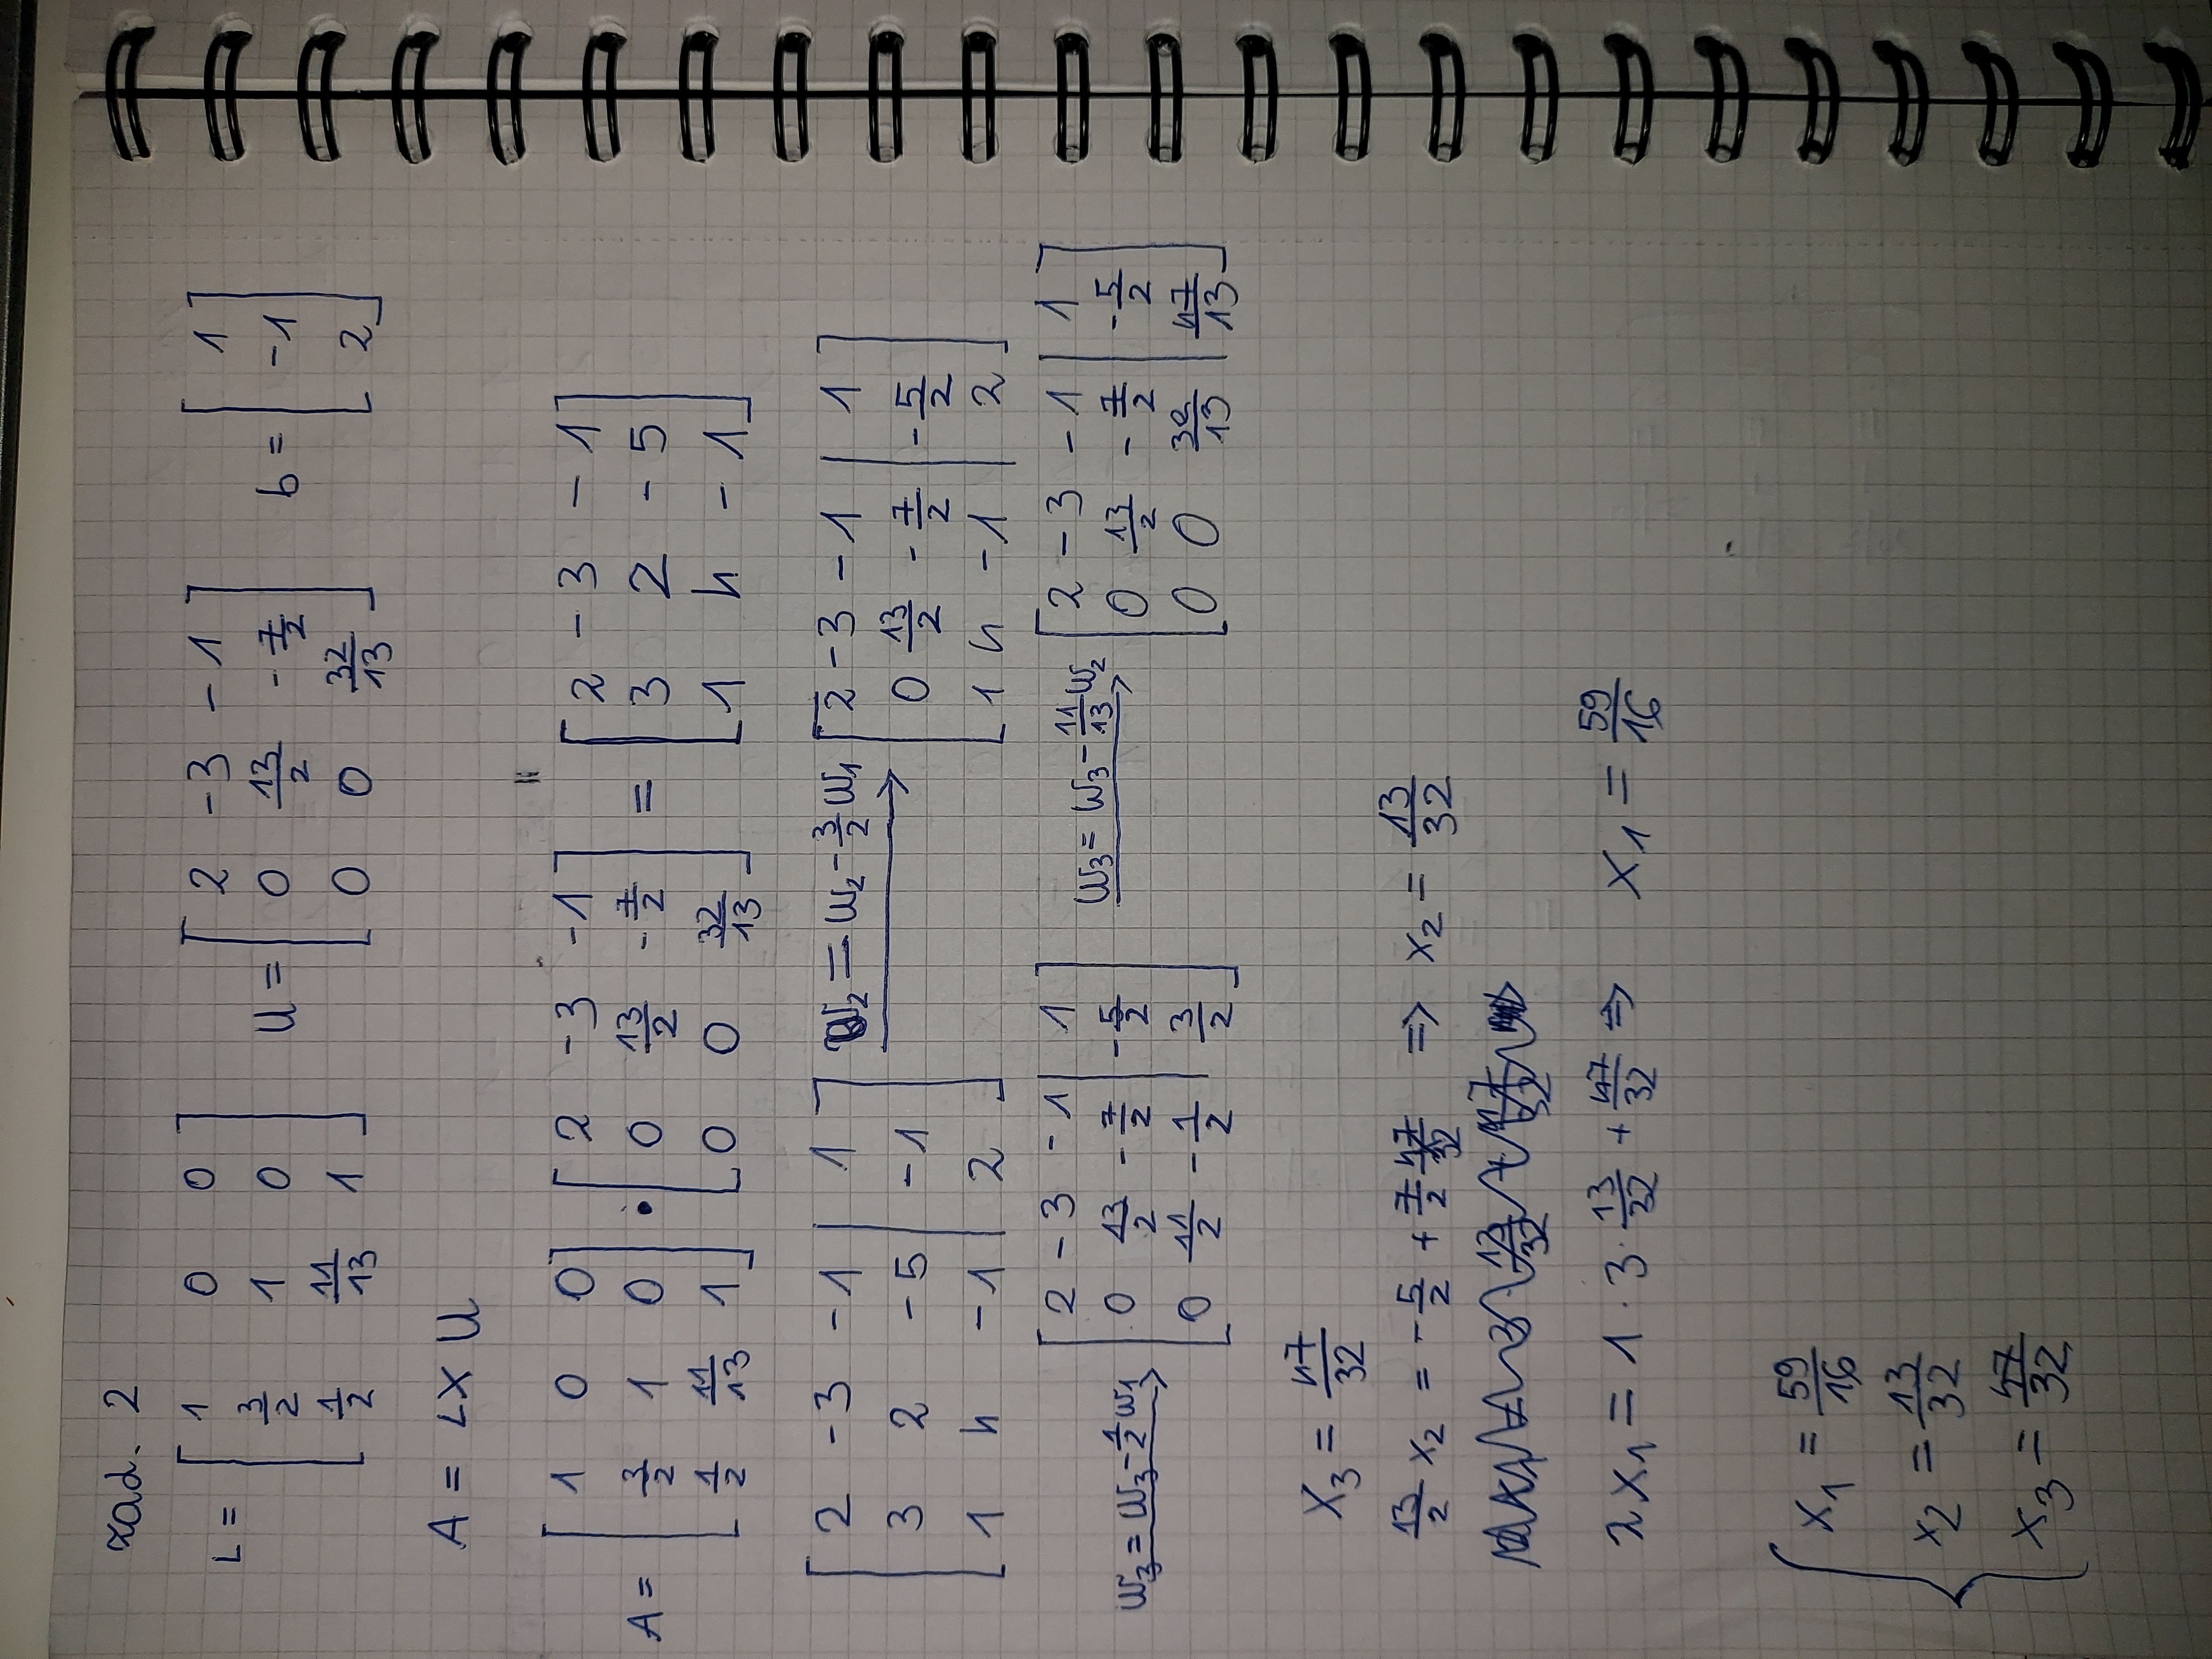 zad. 2
L = [ 1 0 0 ; 3/2 1 0 ; 1/2 11/13 1 ] U = [ 2 -3 -1 ; 0 13/2 -7/2 ; 0 0 32/13 ] b = [ 1 ; -1 ; 2 ]
A = L X U
A = [ 1 0 0 ; 3/2 1 0 ; 1/2 11/13 1 ] · [ 2 -3 -1 ; 0 13/2 -7/2 ; 0 0 32/13 ] = [ 2 -3 -1 ; 3 2 -5 ; 1 4 -1 ]
[ 2 -3 -1 | 1 ; 3 2 -5 | -1 ; 1 4 -1 | 2 ] W₂ = W₂ - 3/2 W₁ → [ 2 -3 -1 | 1 ; 0 13/2 -7/2 | -5/2 ; 1 4 -1 | 2 ]
W₃ = W₃ - 1/2 W₁ → [ 2 -3 -1 | 1 ; 0 13/2 -7/2 | -5/2 ; 0 11/2 -1/2 | 3/2 ] W₃ = W₃ - 11/13 W₂ → [ 2 -3 -1 | 1 ; 0 13/2 -7/2 | -5/2 ; 0 0 32/13 | 47/13 ]
X₃ = 47/32
13/2 x₂ = -5/2 + 7/2 47/32 ⇒ x₂ = 13/32
2x₁ = 1 · 3 · 13/32 + 47/32 ⇒ x₁ = 59/16
{ x₁ = 59/16
x₂ = 13/32
x₃ = 47/32